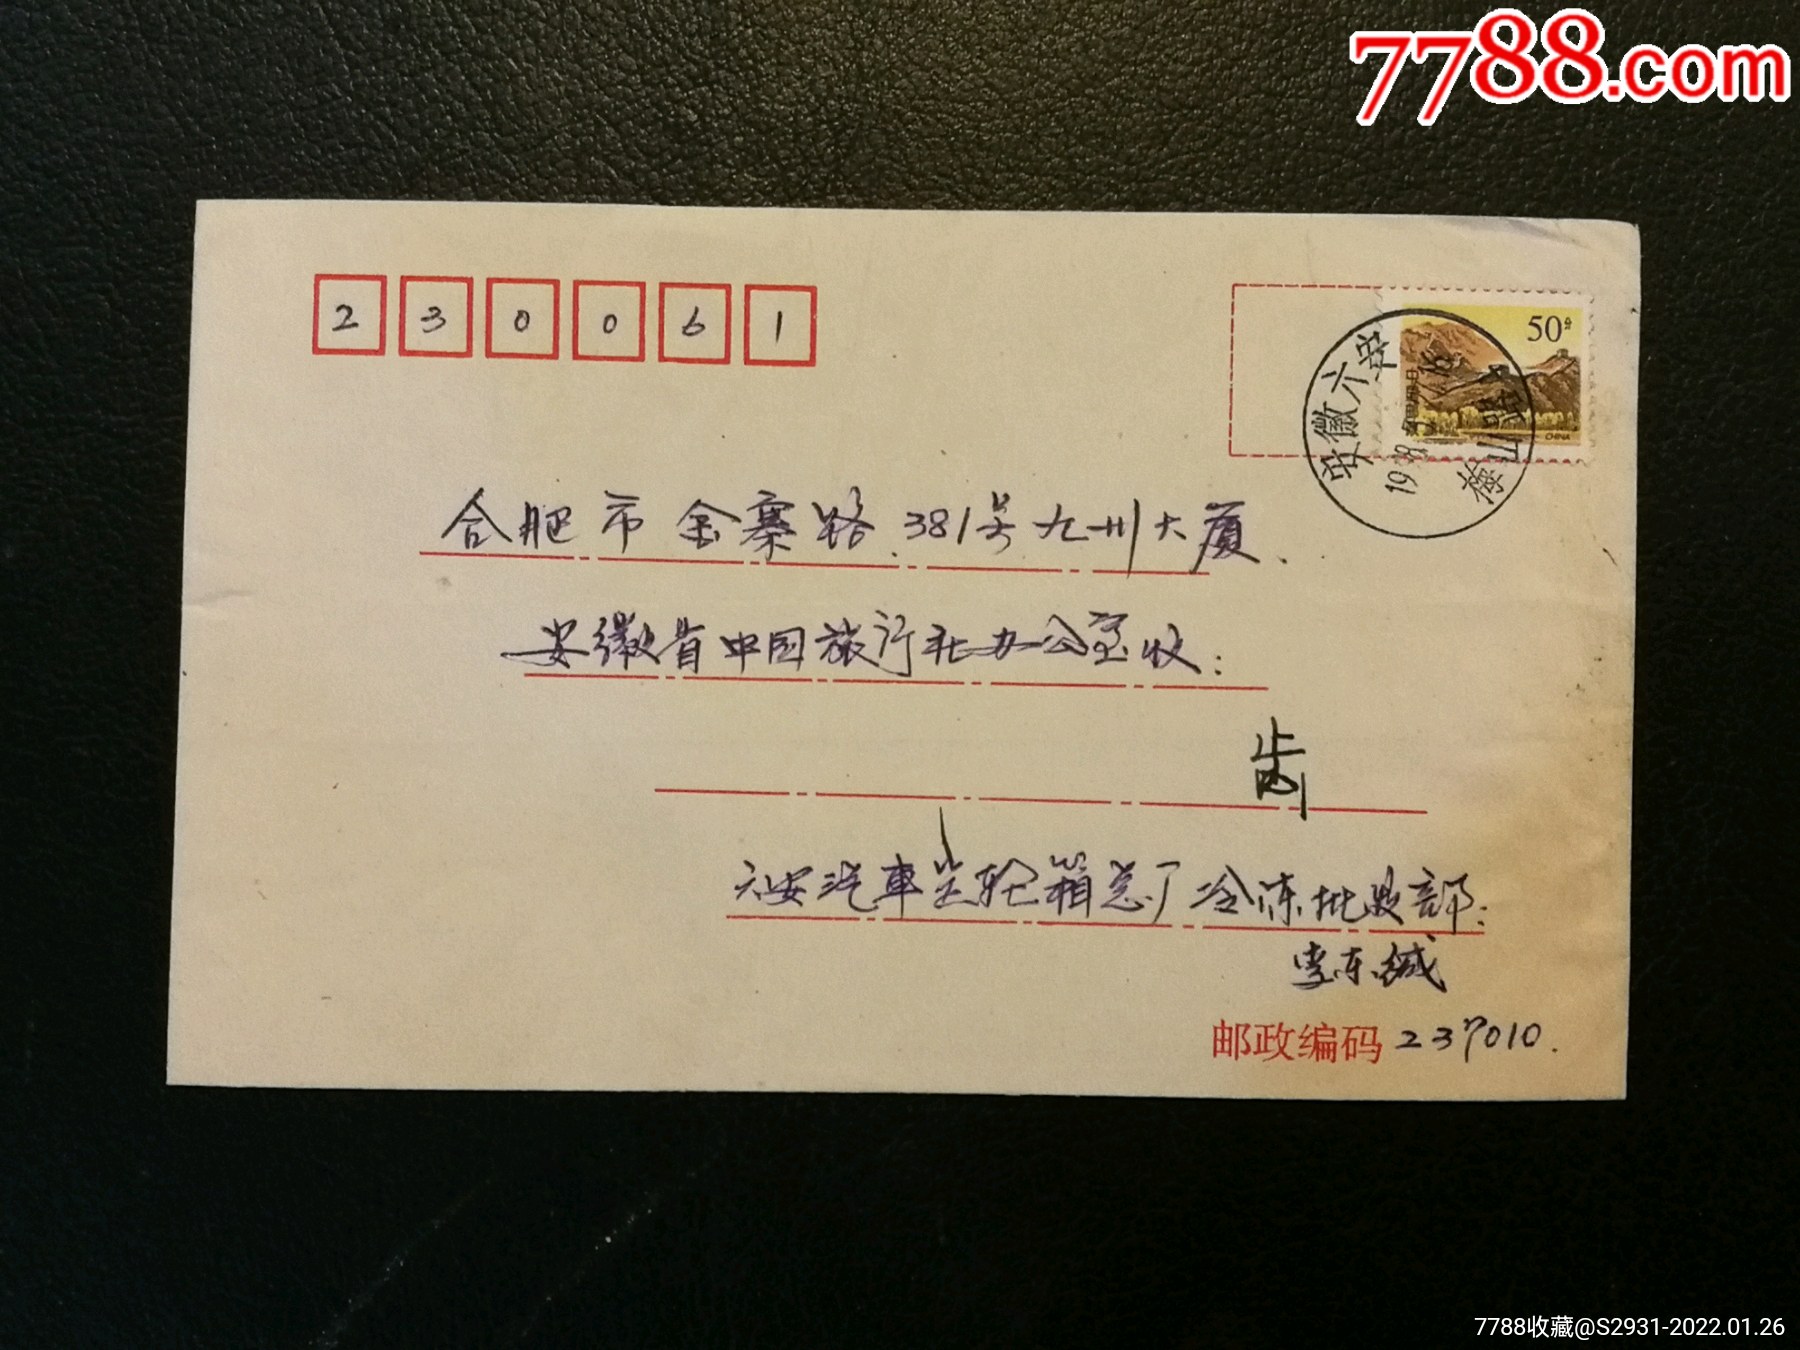 7788.com
230061
50分
CHINA
安徽六安
梅山路
合肥市金寨路381号九州大厦.
安徽省中国旅行社办公室收:
六安汽车坐轮箱总厂冷冻批发部:
李东缄
邮政编码 237010.
7788收藏@S2931-2022.01.26